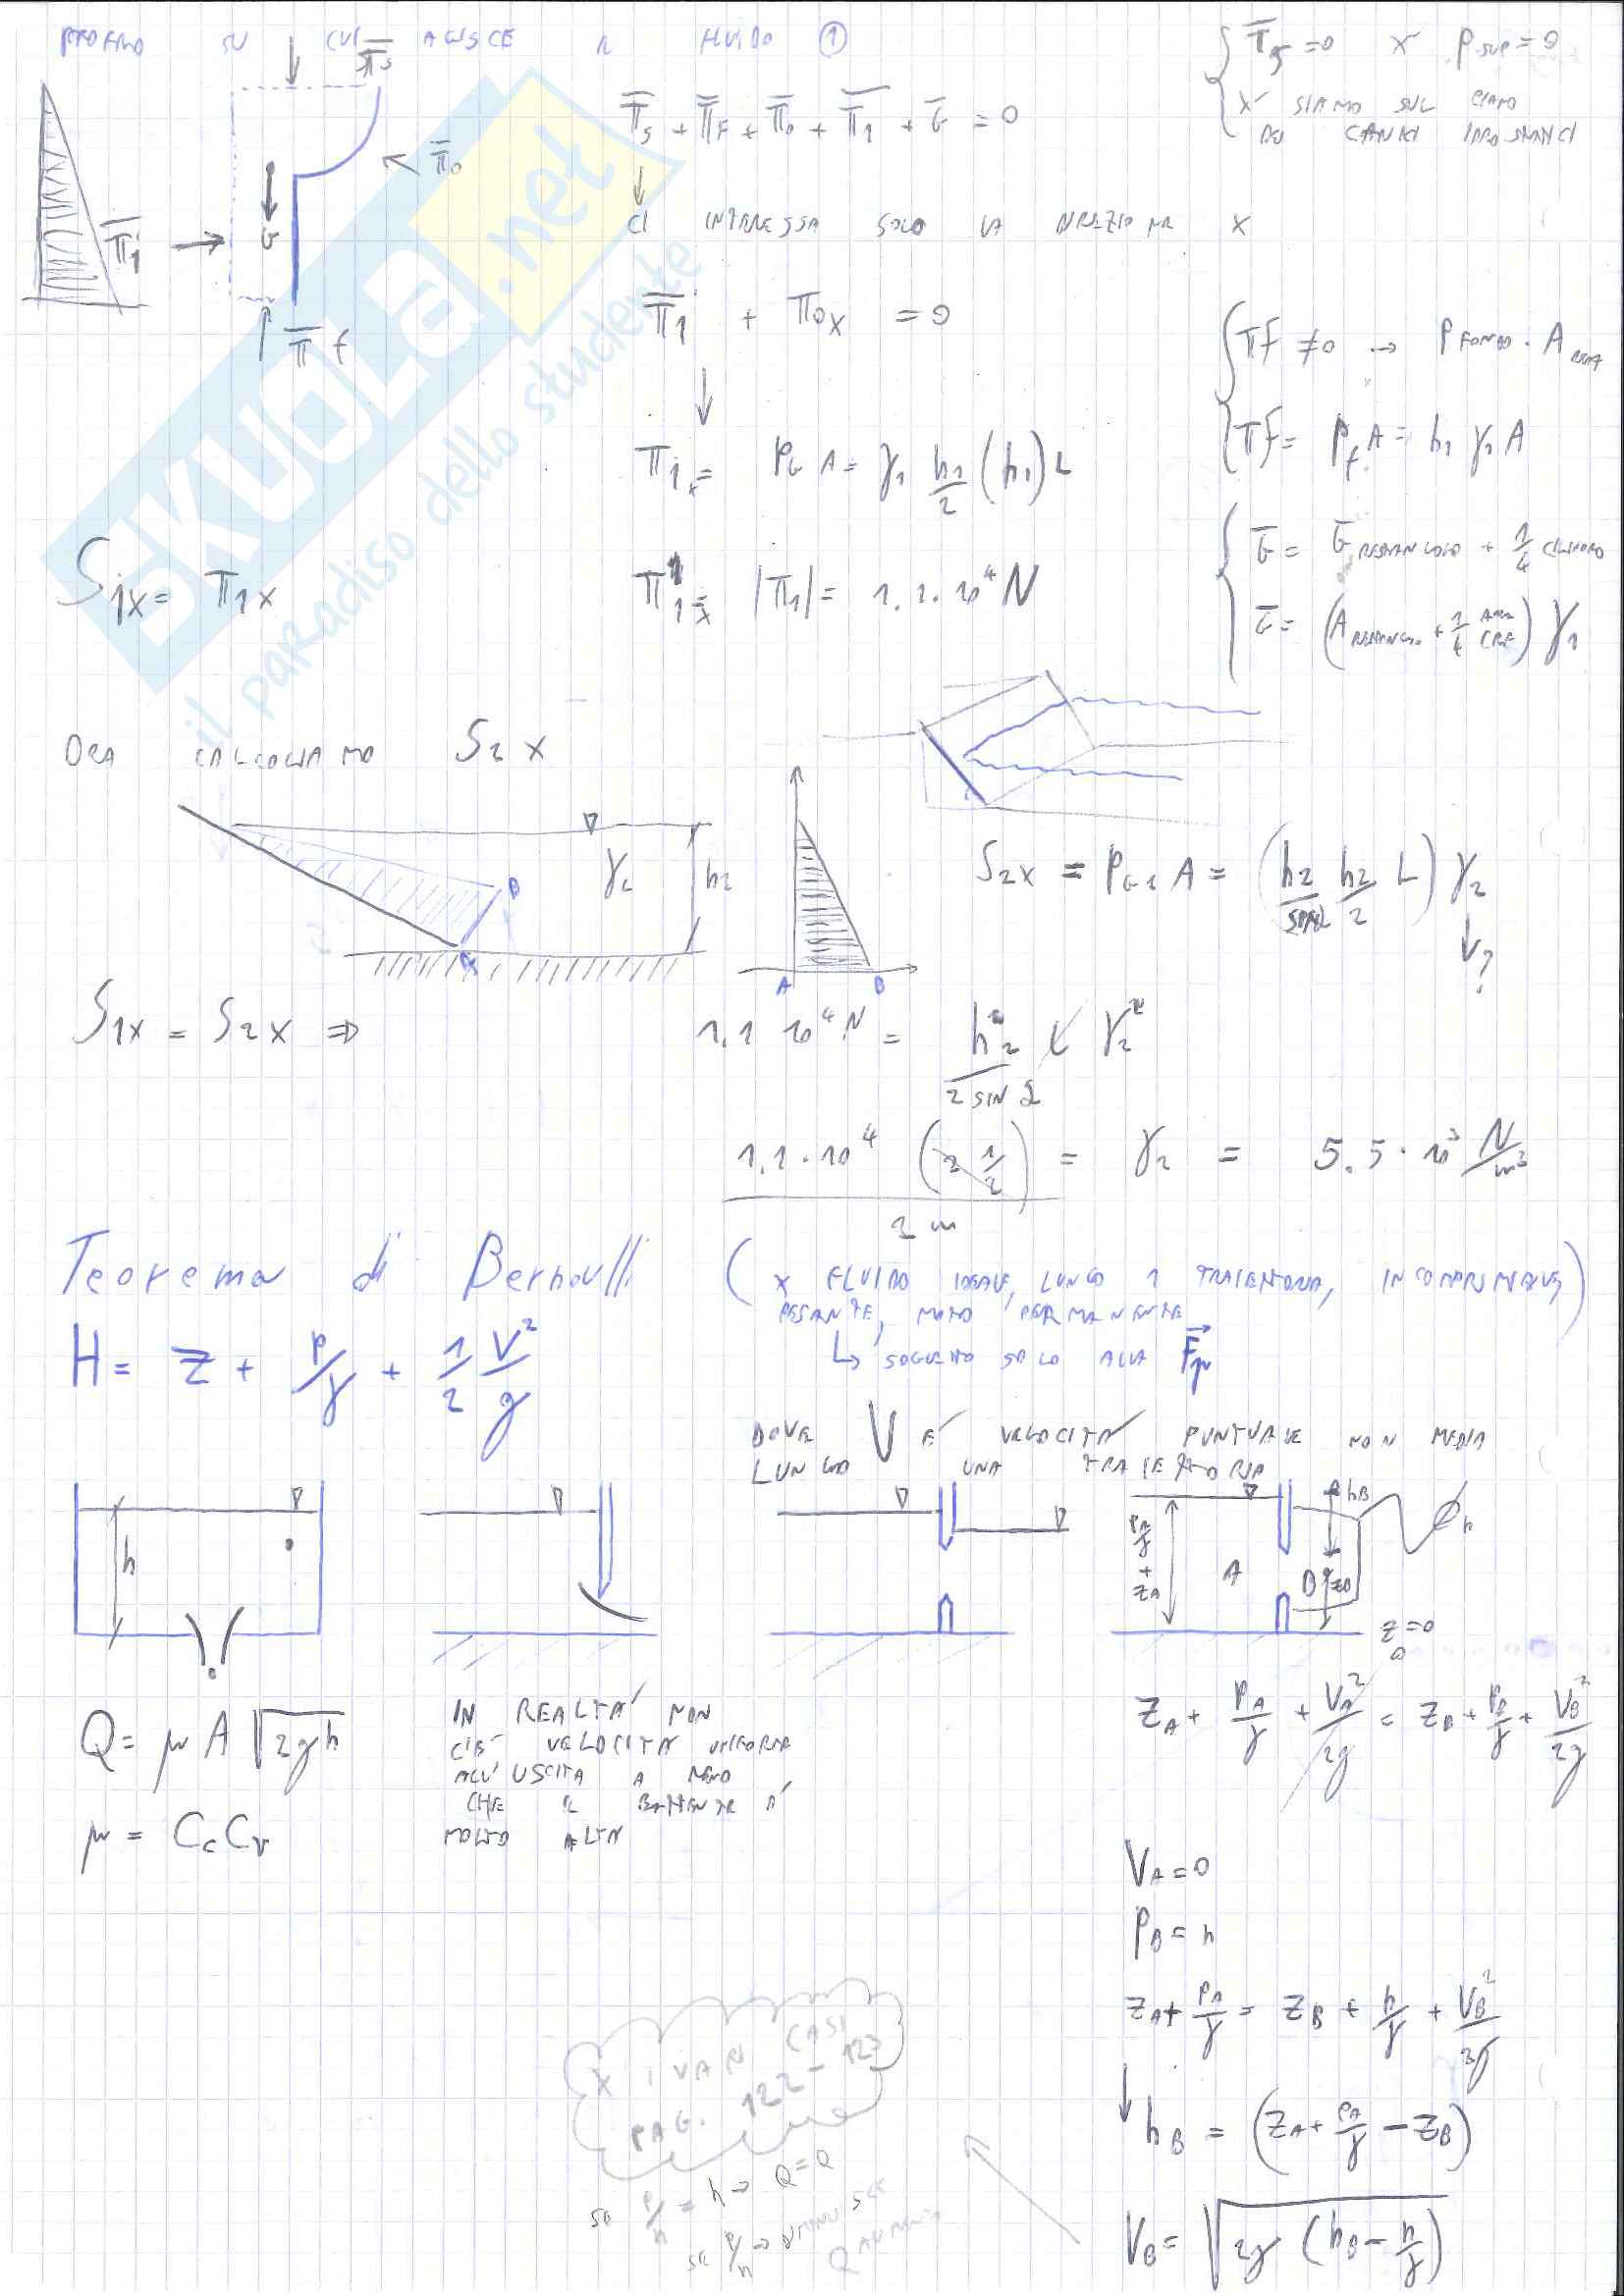 PROFILO SU CUI AGISCE IL FLUIDO ①
Π̄s
Π̄₀
G
Π̄₁
Π̄f
Π̄s + Π̄f + Π̄₀ + Π̄₁ + Ḡ = 0
↓
CI INTERESSA SOLO LA DIREZIONE X
Π̄₁ + Π₀x = 0
↓
Π₁x = PG A = γ₁ h₁/2 (h₁) L
Π₁x = |Π₁| = 1.1·10⁴ N
S₁x = Π₁x
Π̄s = 0 x' Psup = 0
x' SIAMO SUL PIANO
DEI CARICHI IDROSTATICI
Πf ≠ 0 → P FONDO · A
Πf = Pf A = h₁ γ₁ A
Ḡ = Ḡ RETTANGOLO + 1/4 CILINDRO
Ḡ = (A RETTANGOLO + 1/4 AREA CRF) γ₁
ORA CALCOLIAMO S₂x
γ₂
h₂
B
A
A B
S₂x = PG₂ A = (h₂/sinα h₂/2 L) γ₂
↓
?
S₁x = S₂x ⇒
1.1 10⁴ N = h₂²/2 sin α L γ₂
1.1·10⁴ (2 1/2)/2 m = γ₂ = 5.5·10³ N/m³
Teorema di Bernoulli
(x FLUIDO IDEALE, LUNGO 1 TRAIETTORIA, INCOMPRIMIBILE,
PESANTE, MOTO PERMANENTE
↳ SOGGETTO SOLO ALLA F⃗p)
H = Z + P/γ + 1/2 V²/g
DOVE V E' VELOCITA' PUNTUALE NON MEDIA
LUNGO UNA TRAIETTORIA
h
PA/γ + ZA
A
hB
B
ZB
n
z=0
Q = μ A √2gh
μ = Cc Cv
IN REALTA' NON
C'E' VELOCITA' UNIFORME
ALL'USCITA A MENO
CHE IL BATTENTE E'
MOLTO ALTO
ZA + PA/γ + VA²/2g = ZB + PB/γ + VB²/2g
VA = 0
PB = n
ZA + PA/γ = ZB + n/γ + VB²/2g
↓ hB = (ZA + PA/γ − ZB)
VB = √2g (hB − n/γ)
X I VARI CASI
PAG. 122 - 123
SE P/n = h → Q = 0
SE P/n → DIMINUISCE
Q AUMENTA
SKUOLA.net
il paradiso dello studente